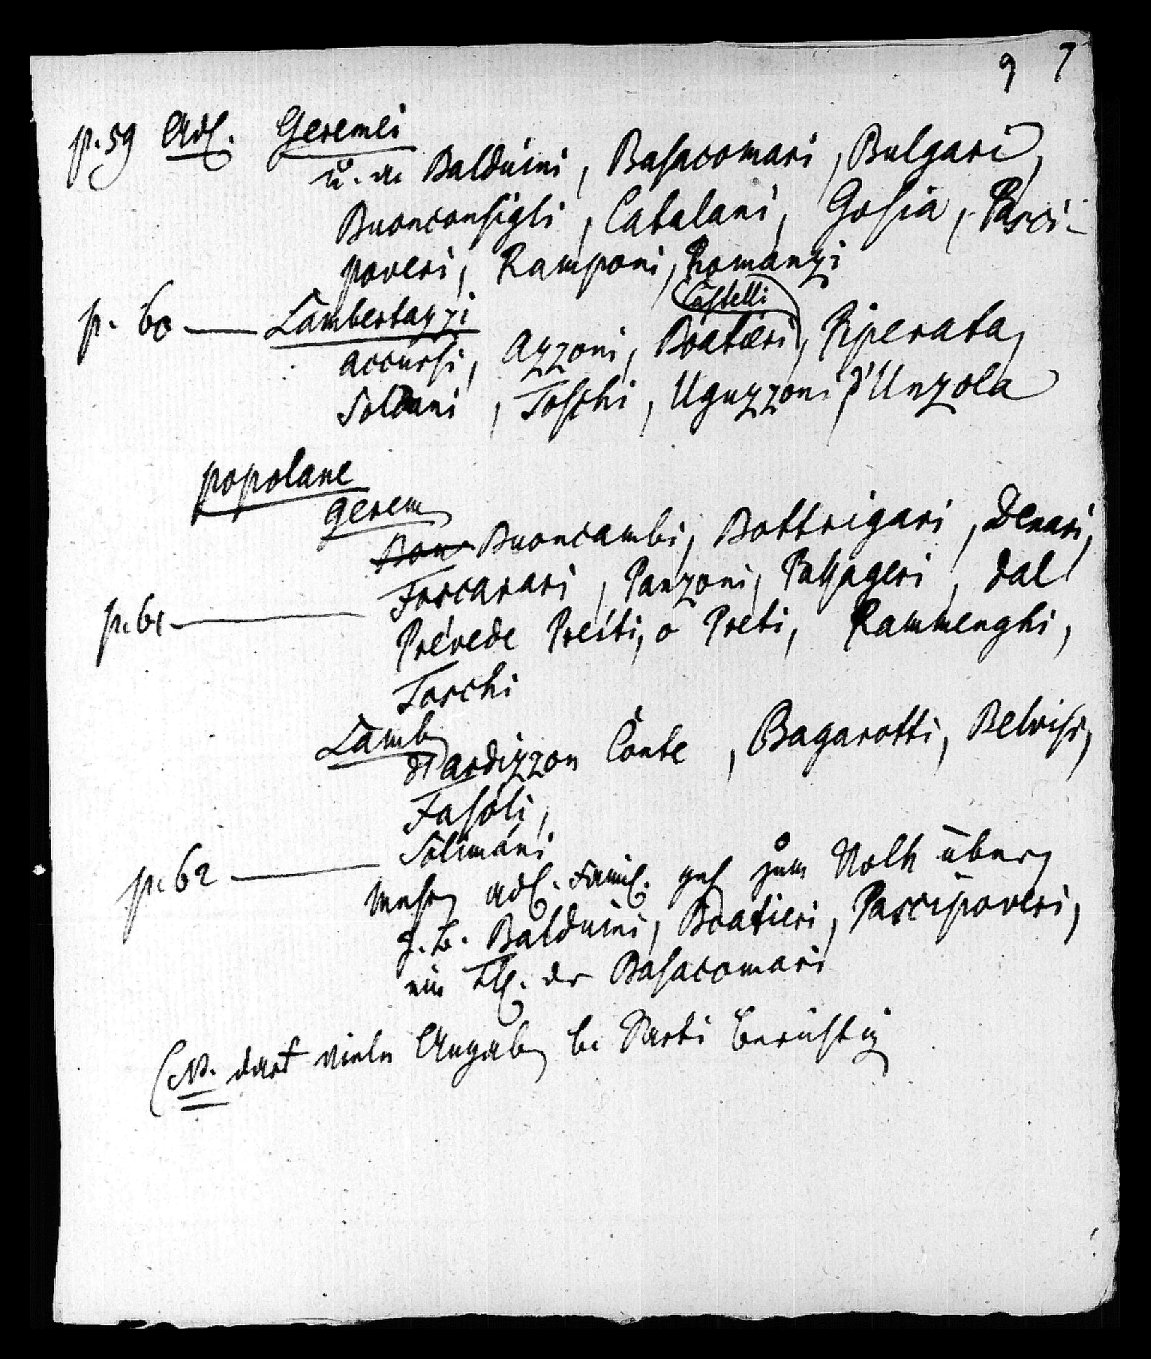 9 7
p. 59 Adl. Geremei
u. a. Balduini, Basacomari, Bulgari,
Buonconsigli, Catalani, Gosia, Pasci-
poveri, Ramponi, Romanzi
Castelli
p. 60 — Lambertazzi
accursi, Azzoni, Boatieri, Riperata,
Soldani, Toschi, Uguzzoni, d'Unzola
popolane
Gerem
Bon Buoncambi, Bottrigari, Denari,
Foscarari, Panzoni, Passageri, dal
p. 61 — Prévede Preíti, o Preti, Rammenghi,
Torchi
Lamb
d'ardizzon Conte, Bagarotti, Belvisi,
Fasoli,
p. 62 — Solimáni
mehr adl. Famil. zum Volk überg
z. B. Balduini, Boatieri, Pascipoveri,
ein Thl. der Basacomari
(NB. dort viele Angaben bei Sarti berichtig